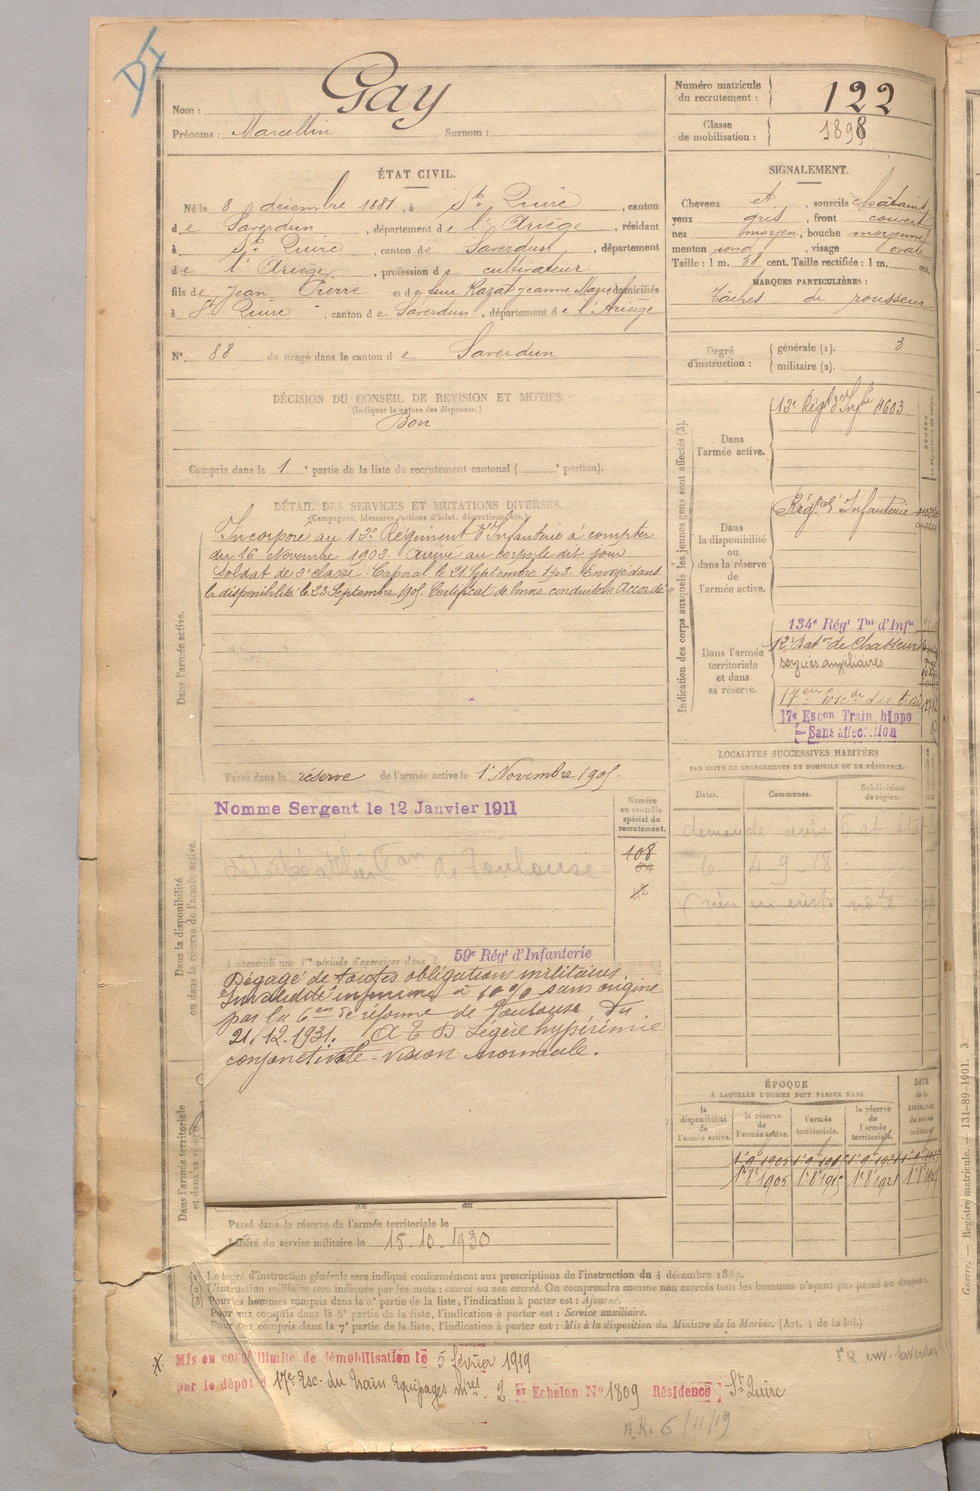 Nom : Gay
Prénoms : Marcellin Surnom :
Numéro matricule du recrutement : 122
Classe de mobilisation : 1898
ÉTAT CIVIL.
Né le 8 décembre 1881, à St Quirc, canton
de Saverdun, département de l'Ariège, résidant
à St Quirc, canton de Saverdun, département
de l'Ariège, profession de cultivateur
fils de Jean Pierre et de feue Razat Jeanne Marie domiciliés
à St Quirc, canton de Saverdun, département de l'Ariège
N° 88 de tirage dans le canton de Saverdun
SIGNALEMENT.
Cheveux et, sourcils châtains
yeux gris, front couvert
nez moyen, bouche moyenne
menton rond, visage ovale
Taille : 1 m. 58 cent. Taille rectifiée : 1 m. cent.
MARQUES PARTICULIÈRES :
Tâches de rousseur
Degré d'instruction : générale (1). 3
militaire (2).
DÉCISION DU CONSEIL DE REVISION ET MOTIFS.
(Indiquer la nature des dispenses.)
Bon
Compris dans la 1e partie de la liste du recrutement cantonal ( e portion).
DÉTAIL DES SERVICES ET MUTATIONS DIVERSES.
(Campagnes, blessures, actions d'éclat, décorations, etc.)
Dans l'armée active.
Incorporé au 13e Régiment d'Infanterie à compter
du 16 Novembre 1902. Arrivé au corps le dit jour
Soldat de 2e classe. Caporal le 21 Septembre 1903. Envoyé dans
la disponibilité le 23 Septembre 1905. Certificat de bonne conduite Accordé
Passé dans la réserve de l'armée active le 1er Novembre 1905.
Indication des corps auxquels les jeunes gens sont affectés (3).
Dans l'armée active.
13e Régt d'Infie 4603
Dans la disponibilité ou dans la réserve de l'armée active.
Régt d'Infanterie
Dans l'armée territoriale et dans sa réserve.
134e Régt Tal d'Infie
12e Bat on de Chasseurs
services auxiliaires
17e Escon Train hippo
Sans affectation
Dans la disponibilité ou dans la réserve de l'armée active.
Nomme Sergent le 12 Janvier 1911
Numéro au contrôle spécial du recrutement.
108
de Toulouse
A accompli une 1re période d'exercices dans l
59e Régt d'Infanterie
Dégagé de toutes obligations militaires.
Invalidité inférieure à 10% sans origine
par la 6e on de réforme de Toulouse, du
21.12.1931. A E D Légère hypérémie
conjonctivale - vision normale.
LOCALITÉS SUCCESSIVES HABITÉES
PAR SUITE DE CHANGEMENTS DE DOMICILE OU DE RÉSIDENCE.
Dates. Communes. Subdivisions de région.
demande avis
6 4-9-18
ÉPOQUE
À LAQUELLE L'HOMME DOIT PASSER DANS
la disponibilité de l'armée active. la réserve de l'armée active. l'armée territoriale. la réserve de l'armée territoriale. DATE de la LIBÉRATION du service militaire
Dans l'armée territoriale et dans sa réserve.
Passé dans la réserve de l'armée territoriale le
Libéré du service militaire le 15.10.1930
(1) Le degré d'instruction générale sera indiqué conformément aux prescriptions de l'instruction du 4 décembre 1889.
(2) L'instruction militaire sera indiquée par les mots : exercé ou non exercé. On comprendra comme non exercés tous les hommes n'ayant pas passé au drapeau.
(3) Pour les hommes compris dans la 2e partie de la liste, l'indication à porter est : Ajourné.
Pour eux compris dans la 6e partie de la liste, l'indication à porter est : Service auxiliaire.
Pour eux compris dans la 7e partie de la liste, l'indication à porter est : Mis à la disposition du Ministre de la Marine. (Art. 4 de la loi.)
Mis en congé illimité de démobilisation le 5 février 1919
par le dépôt d 17e Esc. du train Equipages mres. 2 e Echelon N° 1809 Résidence St Quirc
Guerre. — Registre matricule. — 131-89-1901. 3.